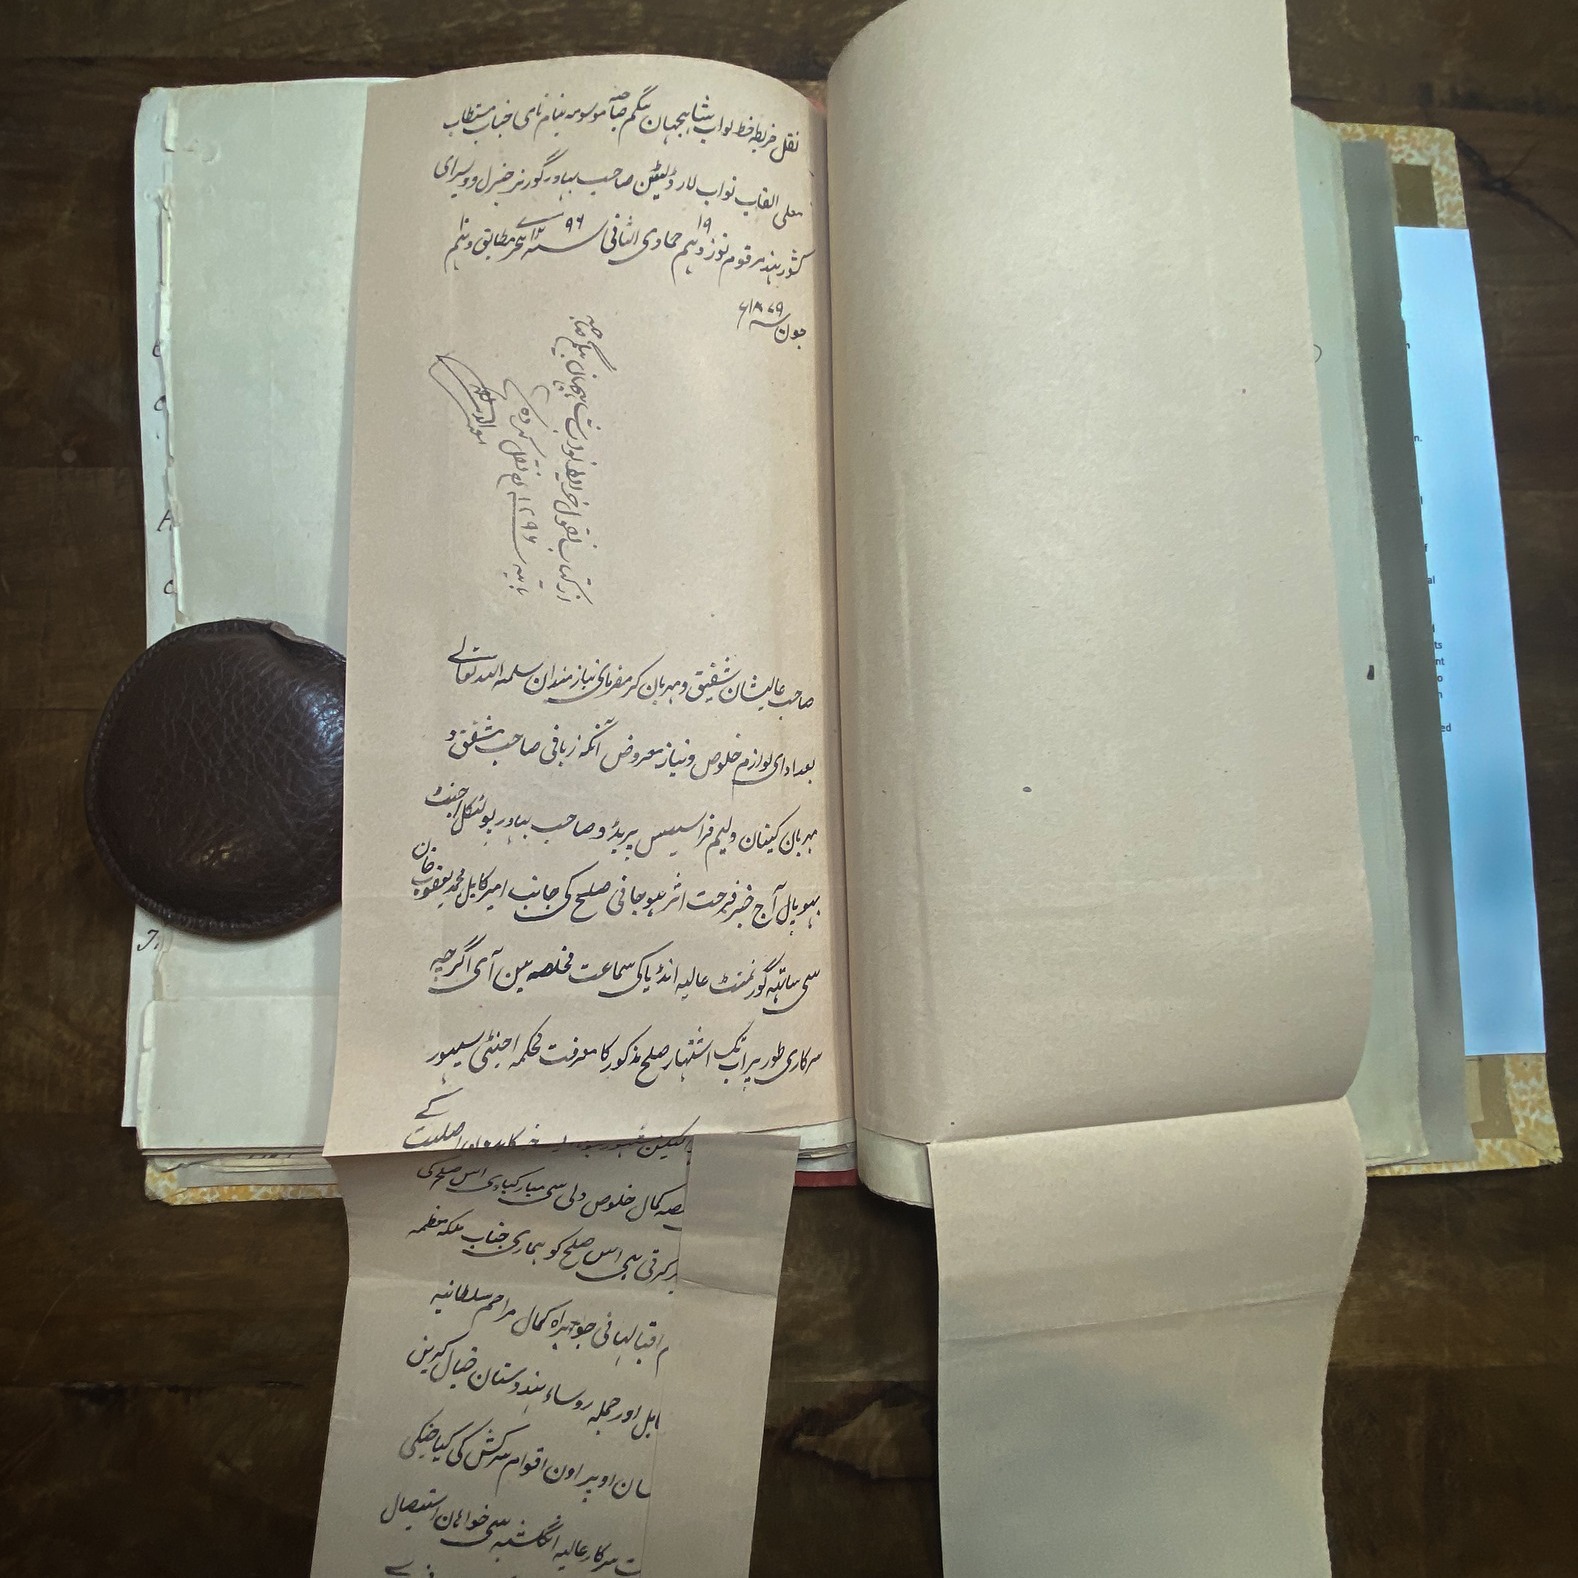 نقل خریطہ خط نواب شاہجہان بیگم صاحبہ موسومہ بنام نامی جناب مستطاب
معلی القاب نواب لارڈ لیٹن صاحب بہادر گورنر جنرل و ویسرای
کشور ہند مرقوم نوزدہم ۱۹ جمادی الثانی سنہ ۱۲۹۶ ہجری مطابق دہم ۱۰
جون سنہ ۱۸۷۹ء
از کتاب نقول خرائط نواب شاہجہان بیگم صاحبہ
بابتہ سنہ ۱۲۹۶ ھ نقل کردہ شد
صاحب عالیشان شفیق و مہربان کرمفرمای نیازمندان سلمہ اللہ تعالے
بعد ادای لوازم خلوص و نیاز معروض آنکہ زبانی صاحب مشفق و
مہربان کپتان ولیم فرانسیس پریڈو صاحب بہادر پولٹکل اجنٹ
بہوپال آج خبر فرحت اثر ہوجانی صلح کی جانب امیر کابل محمد یعقوب خان
سی ساتہہ گورنمنٹ عالیہ انڈیا کی سماعت مخلصہ مین آی اگرچہ
سرکاری طور پر اب تک اشتہار صلح مذکور کا معرفت محکمہ اجنٹی سیہور
کے
لیکن اصلیت
مخلصہ کمال خلوص دلی سی مبارکبادی اس صلح کی
کرتی ہی اس صلح کو ہماری جناب ملکہ معظمہ
اقبالہا نی جو براہ کمال مراحم سلطانیہ
اور جملہ روساء ہندوستان خیال کرین
اوپر اون اقوام سرکش کی کیا جنکی
سرکار عالیہ انگلشیہ سی خواہان استیصال